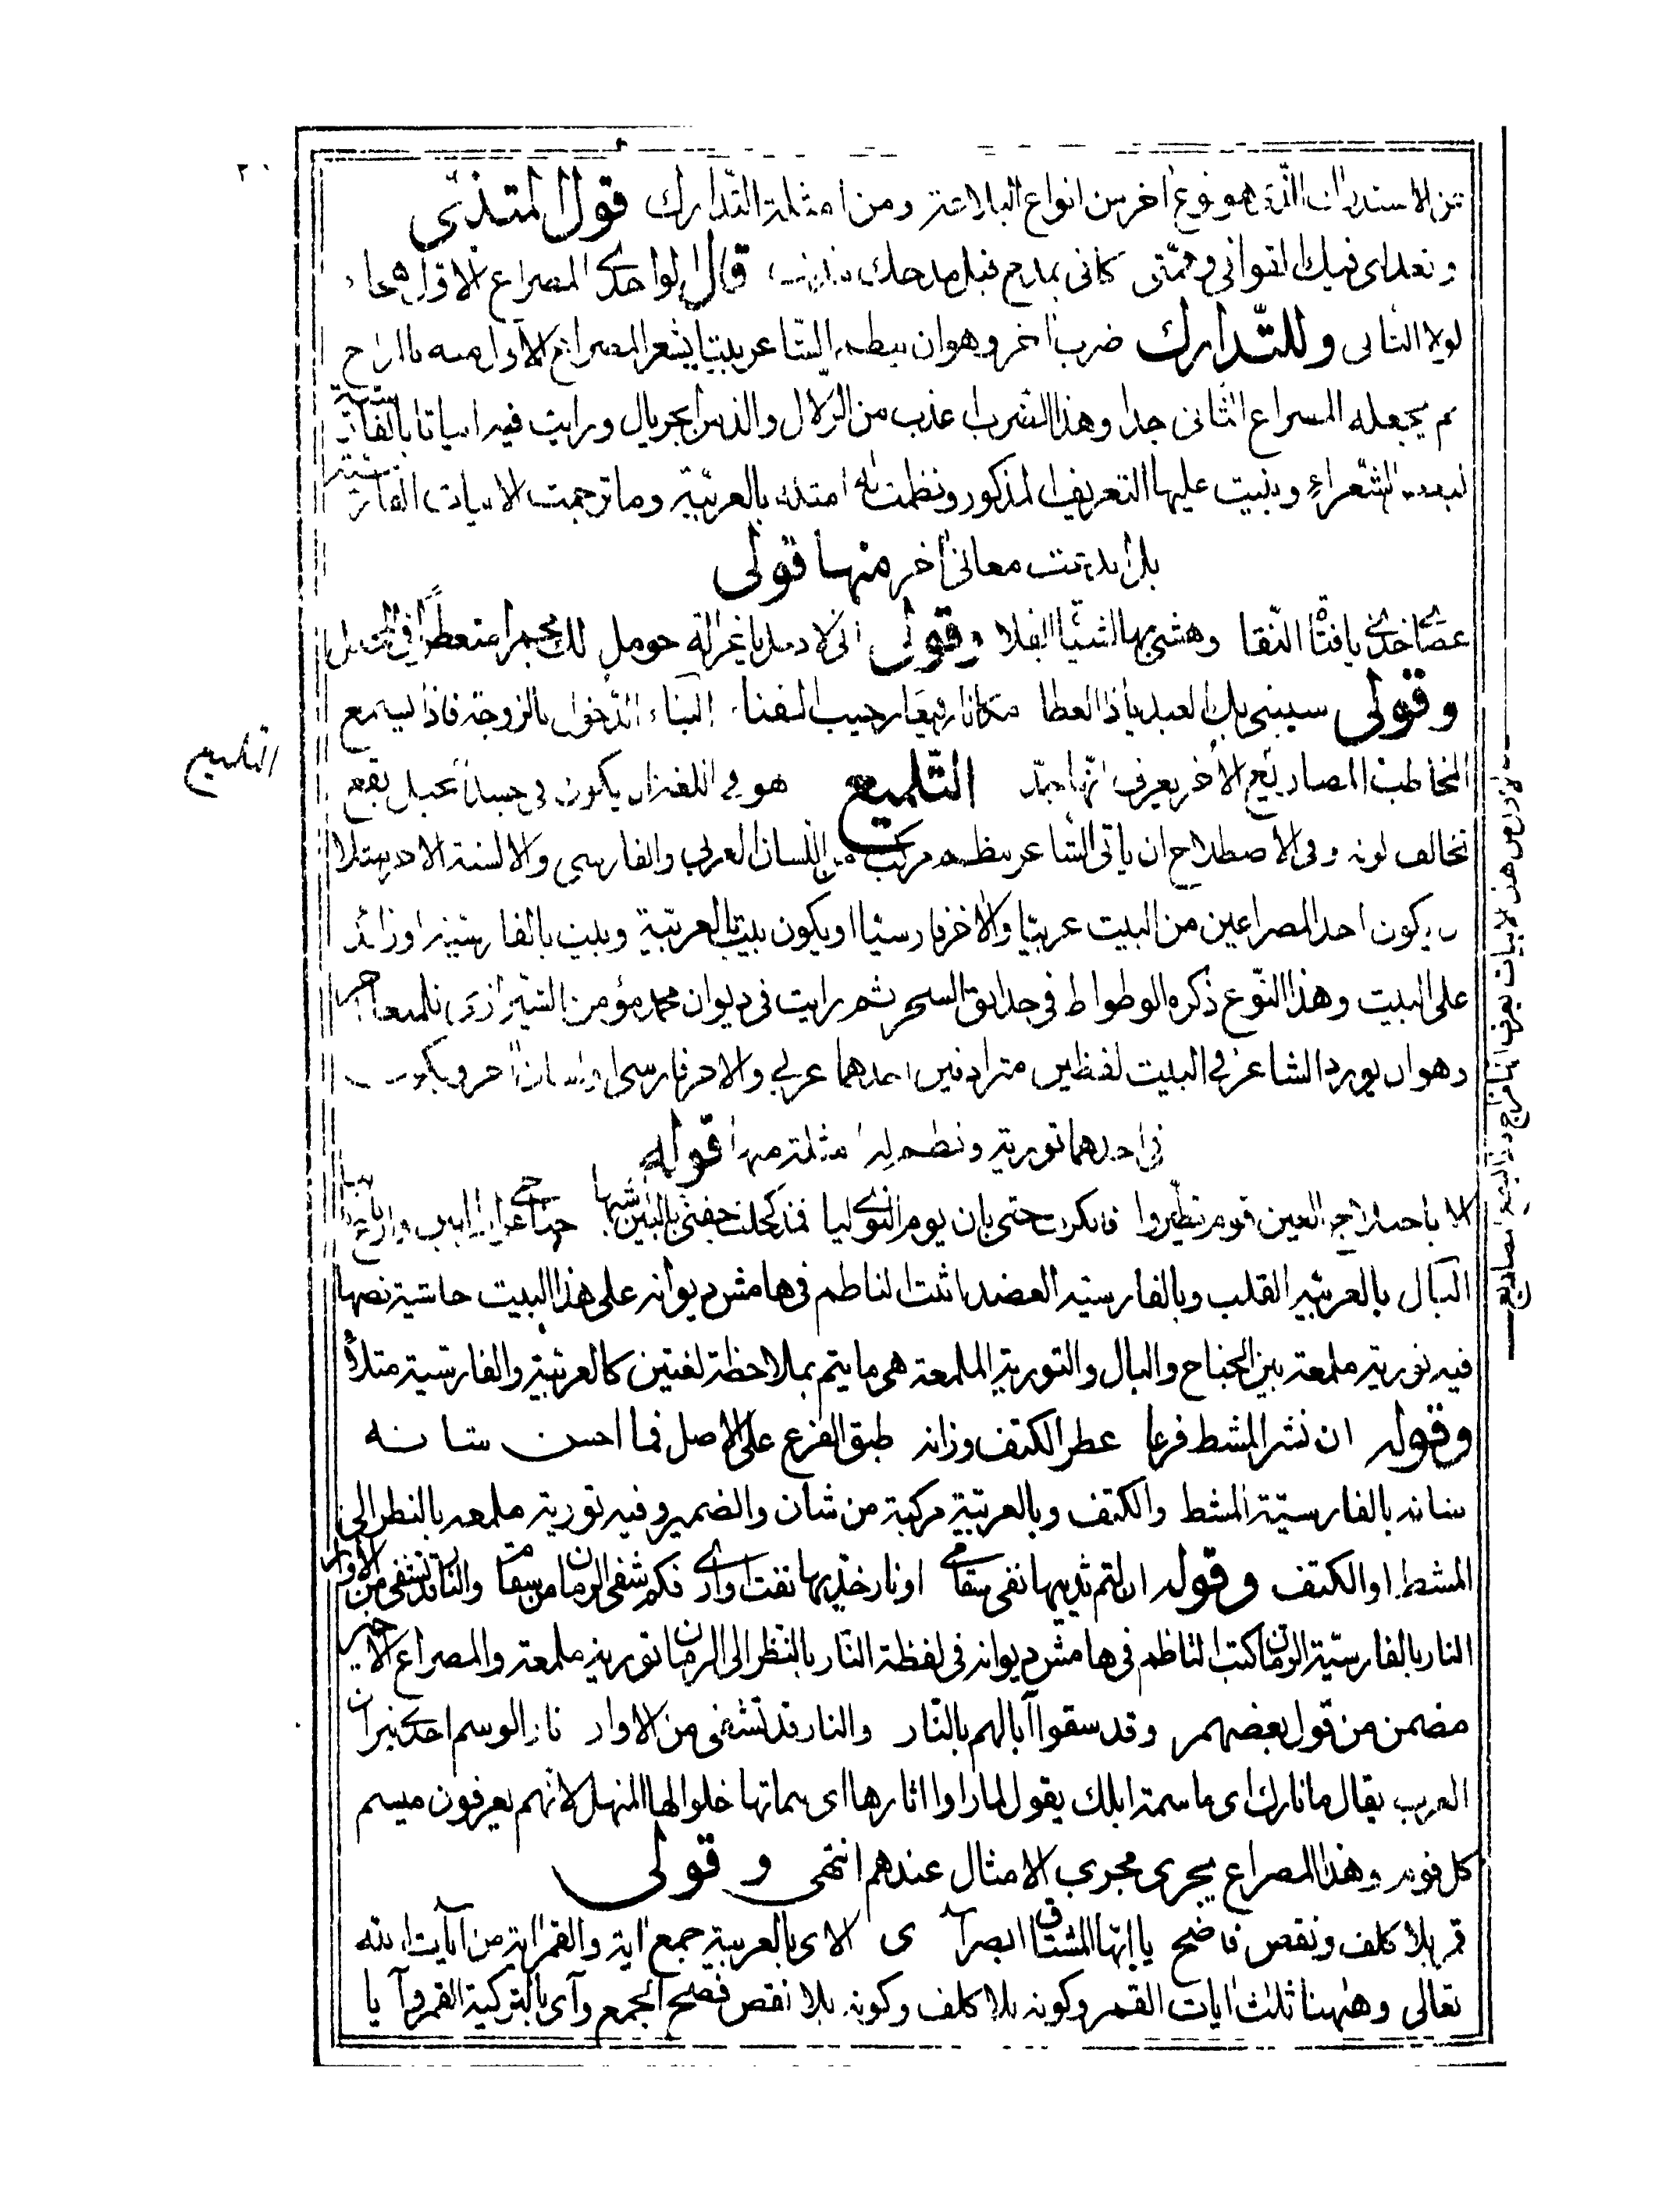 من الاستدراك الذى هو نوع اخر من انواع البلاغة ومن امثلة التدارك قول المتنبى
وتعذلنى فيك القوافى وهمتى كانى بمدح قبل مدحك مذنب قال الواحدى المصراع الاول هجاء
لولا الثانى وللتدارك ضرب اخر وهو ان ينظم الشاعر بيتا يشعر المصراع الاول منه بالمزاح
ثم يجعله المصراع الثانى جدا وهذا الضرب اعذب من الزلال والذ من الجريال ورايت فيه ابياتا بالفارسية
لبعض الشعراء وبنيت عليها التعريف المذكور ونظمت له امثلة بالعربية وما ترجمت الابيات الفارسية
بل ابدعت معانى اخر منها قولى
عصاى خذى يا فتاة النقا وهشى بها الشياه الفلا وقولى انى لادخل يا غزالة حومل لك مجمرا متعطرا فى
وقولى سيبنى بك العبد يا ذا العطا مكانا رفيعا رحيب الفناء البناء الدخول بالزوجة فاذا يسمع
المخاطب المصاريع الاخر يعرف انها جد التلميع هو فى اللغة ان يكون فى جسد الخيل بقع
تخالف لونه وفى الاصطلاح ان ياتى الشاعر بنظم مركب من اللسان العربى والفارسى والالسنة الاخر مثلا
يكون احد المصراعين من البيت عربيا والاخر فارسيا او يكون بيت بالعربية وبيت بالفارسية او زائد
على البيت وهذا النوع ذكره الوطواط فى حدائق السحر ثم رايت فى ديوان محمد مؤمن الشيرازى تلميعا اخر
وهو ان يورد الشاعر فى البيت لفظين مترادفين احدهما عربى والاخر فارسى او لسان اخر ويكون
فى احدهما تورية ونظم له امثلة منها قوله
الا يا حداج العين قوم تطيروا فابكرت حتى بان يوم النوى ليا فمذ كحلت جفنى بالبين شهبا جناحى غراب البين
البال بالعربية القلب وبالفارسية العضد اثبت الناظم فى هامش ديوانه على هذا البيت حاشية نصها
فيه تورية ملمعة بين الجناح والبال والتورية الملمعة هى ما يتم بملاحظة لغتين كالعربية والفارسية مثلا
وقوله ان نشر المشط فرعا عطر الكتف وزانه طبق الفرع على الاصل فما احسن شانه
شانه بالفارسية المشط والكتف وبالعربية مركبة من شان والضمير وفيه تورية ملمعه بالنظر الى
المشط او الكتف وقوله ان لثم ثديها نفى سقامى او نار خديها نفت اوارى فكم شفى الرمان من سقام والنار قد تشفى من الاوار
النار بالفارسية الرمان كتب الناظم فى هامش ديوانه فى لفظة النار بالنظر الى الرمان تورية ملمعة والمصراع الاخير
مضمن من قول بعضهم وقد سقوا آبالهم بالنار والنار قد تشفى من الاوار نار الوسم احدى نيران
العرب يقال ما نارك اى ما سمة ابلك يقول لما راوا اثارها اى سماتها خلوا لها المنهل لانهم يعرفون ميسم
كل قوم وهذا المصراع يجرى مجرى الامثال عندهم انتهى وقولى
قمر بلا كلف ونقص فاضح يا ايها المشتاق ابصر آى الاى بالعربية جمع اية والقمر اية من آيات الله
تعالى وههنا ثلث ايات القمر وكونه بلا كلف وكونه بلا نقص فصح الجمع وآى بالتركية القمر وآ يا
التلميع
لان من هذا الابيات يعرف انها مزاح دون البصر المصاريع